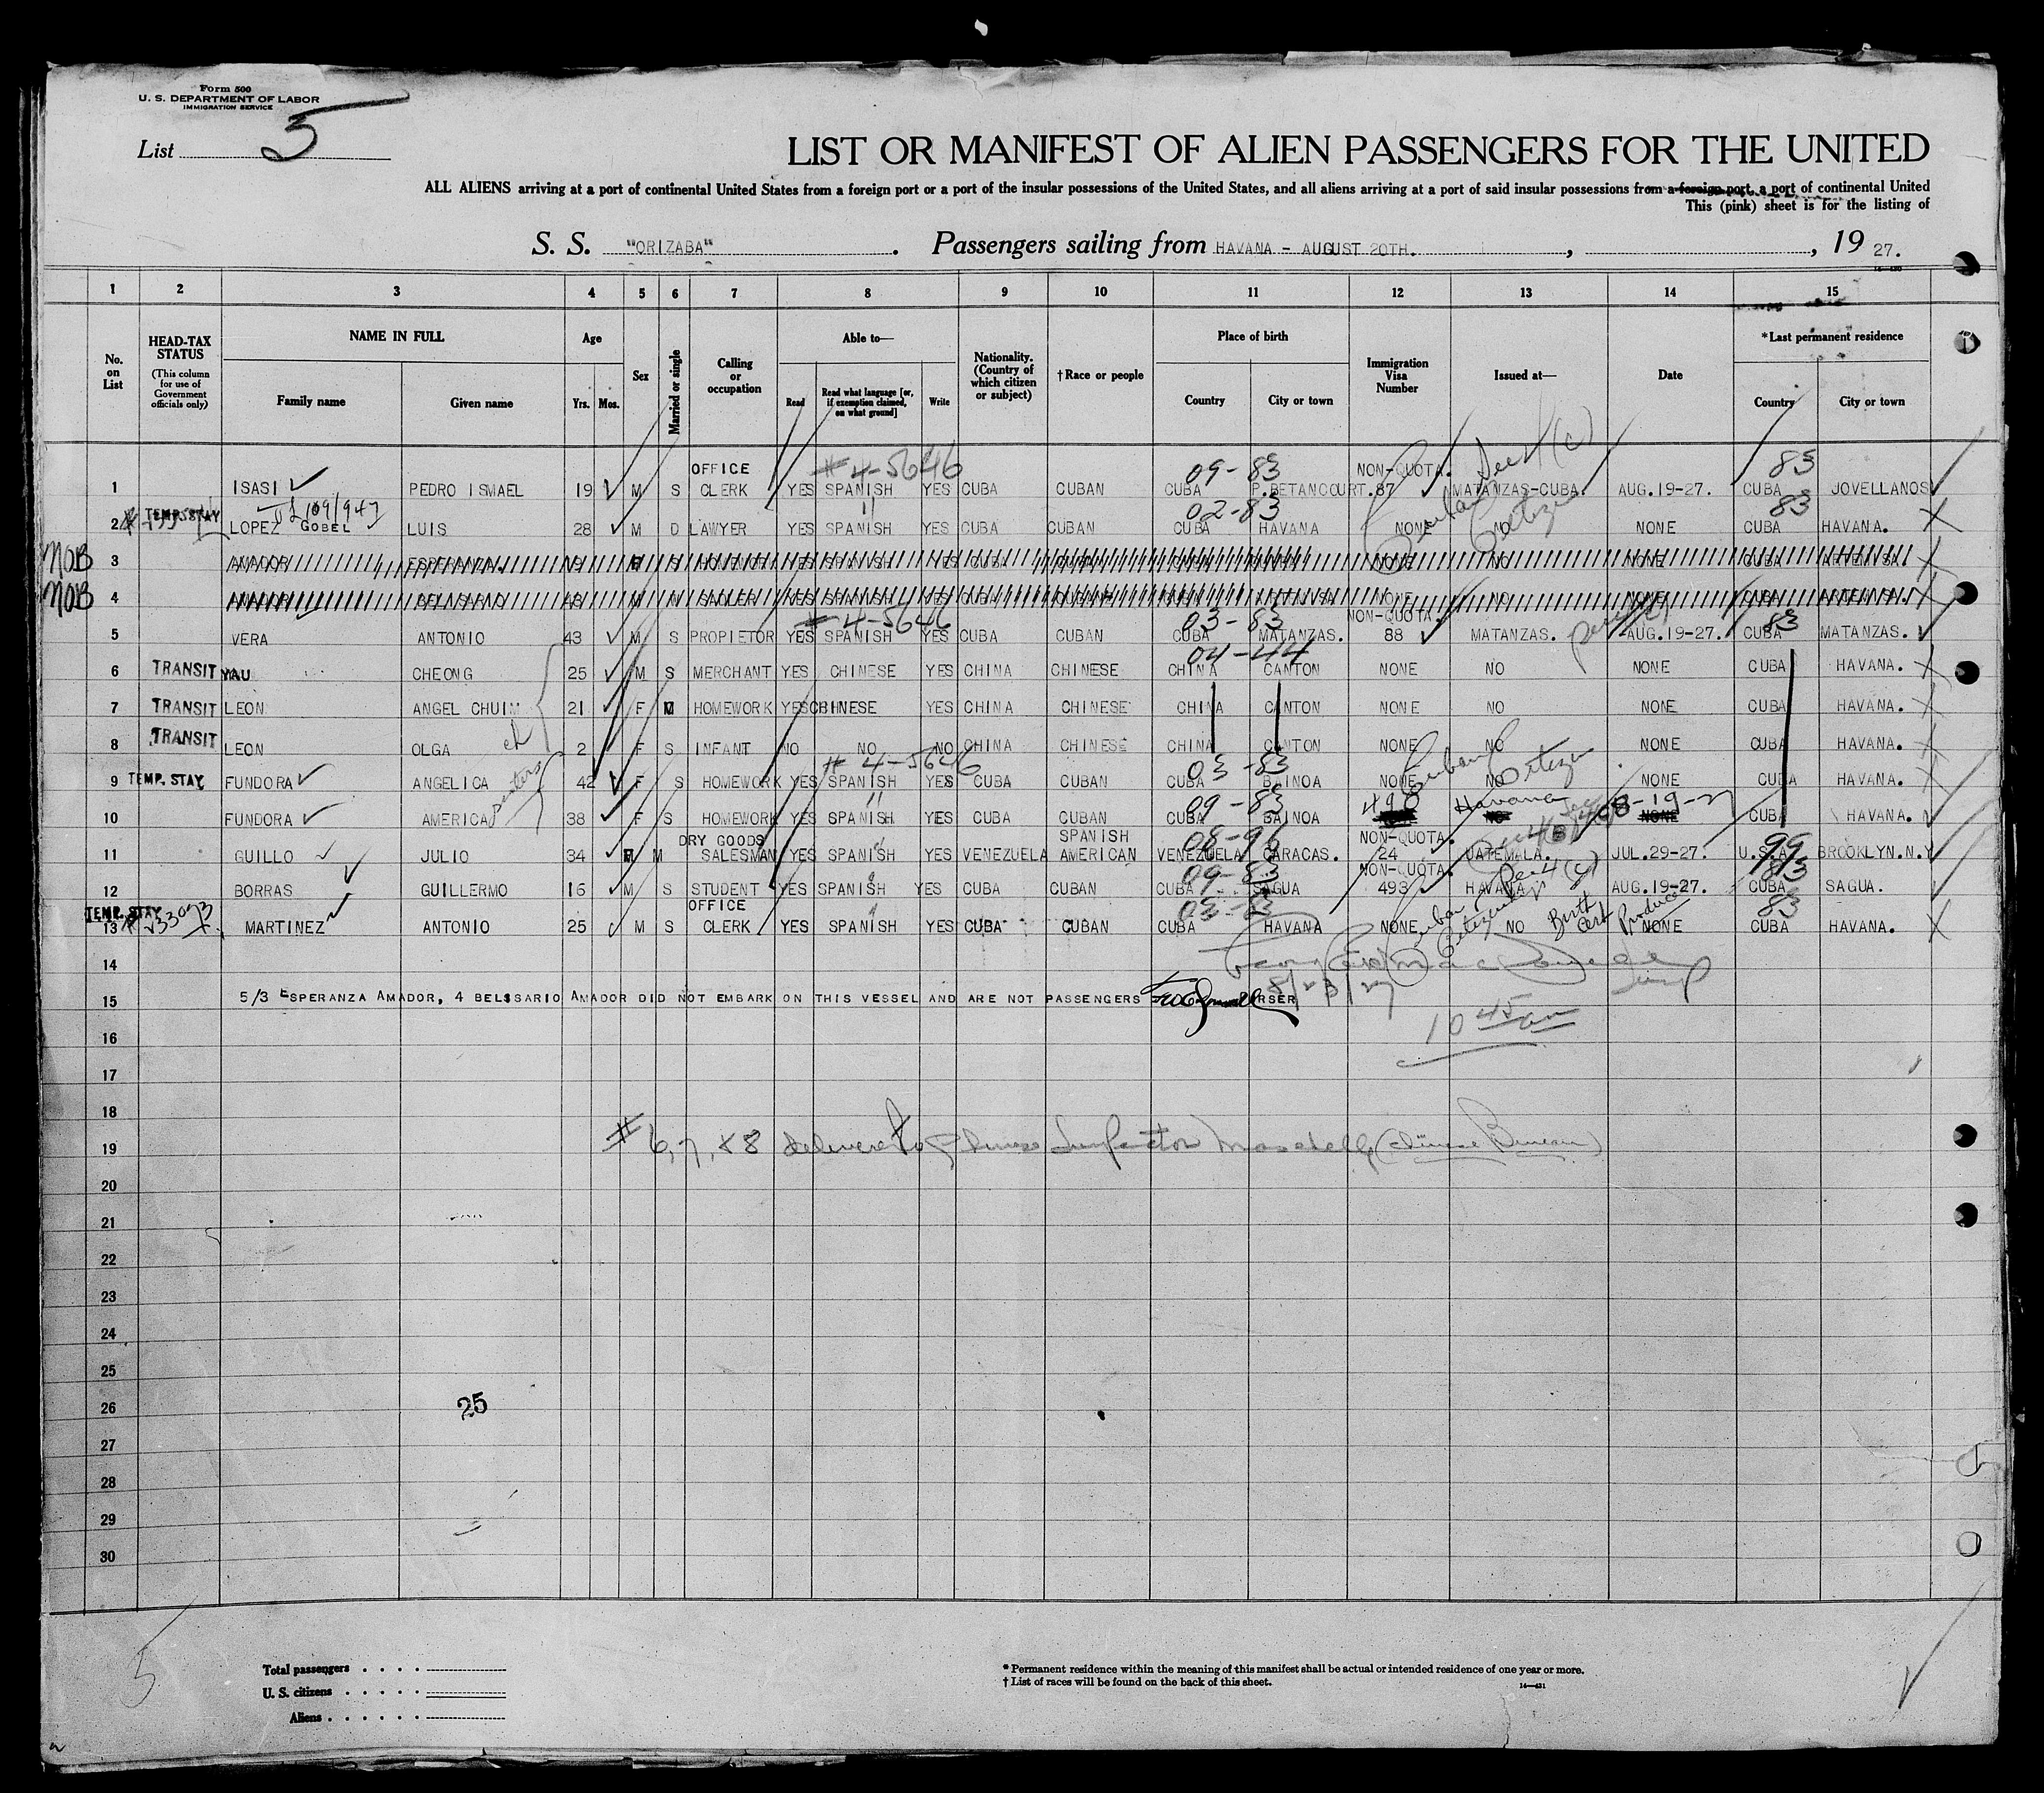 Form 500
U. S. DEPARTMENT OF LABOR
IMMIGRATION SERVICE
List 5
LIST OR MANIFEST OF ALIEN PASSENGERS FOR THE UNITED
ALL ALIENS arriving at a port of continental United States from a foreign port or a port of the insular possessions of the United States, and all aliens arriving at a port of said insular possessions from a foreign port, a port of continental United
This (pink) sheet is for the listing of
S. S. "ORIZABA". Passengers sailing from HAVANA - AUGUST 20TH. , , 19 27.
1 2 3 4 5 6 7 8 9 10 11 12 13 14 15
No. on List
HEAD-TAX STATUS (This column for use of Government officials only)
NAME IN FULL Family name Given name
Age Yrs. Mos.
Sex
Married or single
Calling or occupation
Able to— Read Read what language [or, if exemption claimed, on what ground] Write
Nationality. (Country of which citizen or subject)
† Race or people
Place of birth Country City or town
Immigration Visa Number
Issued at—
Date
*Last permanent residence Country City or town
OFFICE # 4-5646 09-83 NON-QUOTA. Sec 4 (c) 83
1 ISASI PEDRO ISMAEL 19 M S CLERK YES SPANISH YES CUBA CUBAN CUBA P.BETANCOURT. 87 MATANZAS-CUBA. AUG.19-27. CUBA JOVELLANOS
TEMP. STAY 109/947 02-83 Cuban Citizen 83
2 LOPEZ GOBEL LUIS 28 M D LAWYER YES SPANISH YES CUBA CUBAN CUBA HAVANA NONE NO NONE CUBA HAVANA.
NOB 3 AMADOR ESPERANZA. YES SPANISH YES CUBA NONE NO NONE CUBA ARTEMISA.
NOB 4 NONE NO NONE CUBA ARTEMISA.
# 4-5646 03-83 NON-QUOTA. 83
5 VERA ANTONIO 43 M S PROPIETOR YES SPANISH YES CUBA CUBAN CUBA MATANZAS. 88 MATANZAS. AUG.19-27. CUBA MATANZAS.
04-44
6 TRANSIT YAU CHEONG 25 M S MERCHANT YES CHINESE YES CHINA CHINESE CHINA CANTON NONE NO NONE CUBA HAVANA.
7 TRANSIT LEON ANGEL CHUIM 21 F M HOMEWORK YES CHINESE YES CHINA CHINESE CHINA CANTON NONE NO NONE CUBA HAVANA.
8 TRANSIT LEON OLGA ch 2 F S INFANT NO NO NO CHINA CHINESE CHINA CANTON NONE NO NONE CUBA HAVANA.
# 4-5646 03-83 Cuban Citizen
9 TEMP. STAY FUNDORA ANGELICA sisters 42 F S HOMEWORK YES SPANISH YES CUBA CUBAN CUBA BAINOA NONE NO NONE CUBA HAVANA.
09-83 490 Havana 08-19-27
10 FUNDORA AMERICA 38 F S HOMEWORK YES SPANISH YES CUBA CUBAN CUBA BAINOA NONE NO NONE CUBA HAVANA.
DRY GOODS SPANISH 08-96 NON-QUOTA. 99
11 GUILLO JULIO 34 M M SALESMAN YES SPANISH YES VENEZUELA AMERICAN VENEZUELA CARACAS. 24 UATEMALA. JUL.29-27. U.S.A. BROOKLYN.N.Y
09-83 NON-QUOTA. Sec 4 (c) 83
12 BORRAS GUILLERMO 16 M S STUDENT YES SPANISH YES CUBA CUBAN CUBA SAGUA 493 HAVANA AUG.19-27. CUBA SAGUA.
TEMP. STAY OFFICE Cuban Citizen Birth Cert Produced 83
13 MARTINEZ ANTONIO 25 M S CLERK YES SPANISH YES CUBA CUBAN CUBA HAVANA NONE NO NONE CUBA HAVANA.
14
15 5/3 ESPERANZA AMADOR, 4 BELSSARIO AMADOR DID NOT EMBARK ON THIS VESSEL AND ARE NOT PASSENGERS PURSER 8/23/27
16 10 45 am
17
18
19 # 6, 7, & 8 delivered to Chinese Inspector (Chinese Bureau)
20
21
22
23
24
25
26 25
27
28
29
30
5
Total passengers
U. S. citizens
Aliens
* Permanent residence within the meaning of this manifest shall be actual or intended residence of one year or more.
† List of races will be found on the back of this sheet.